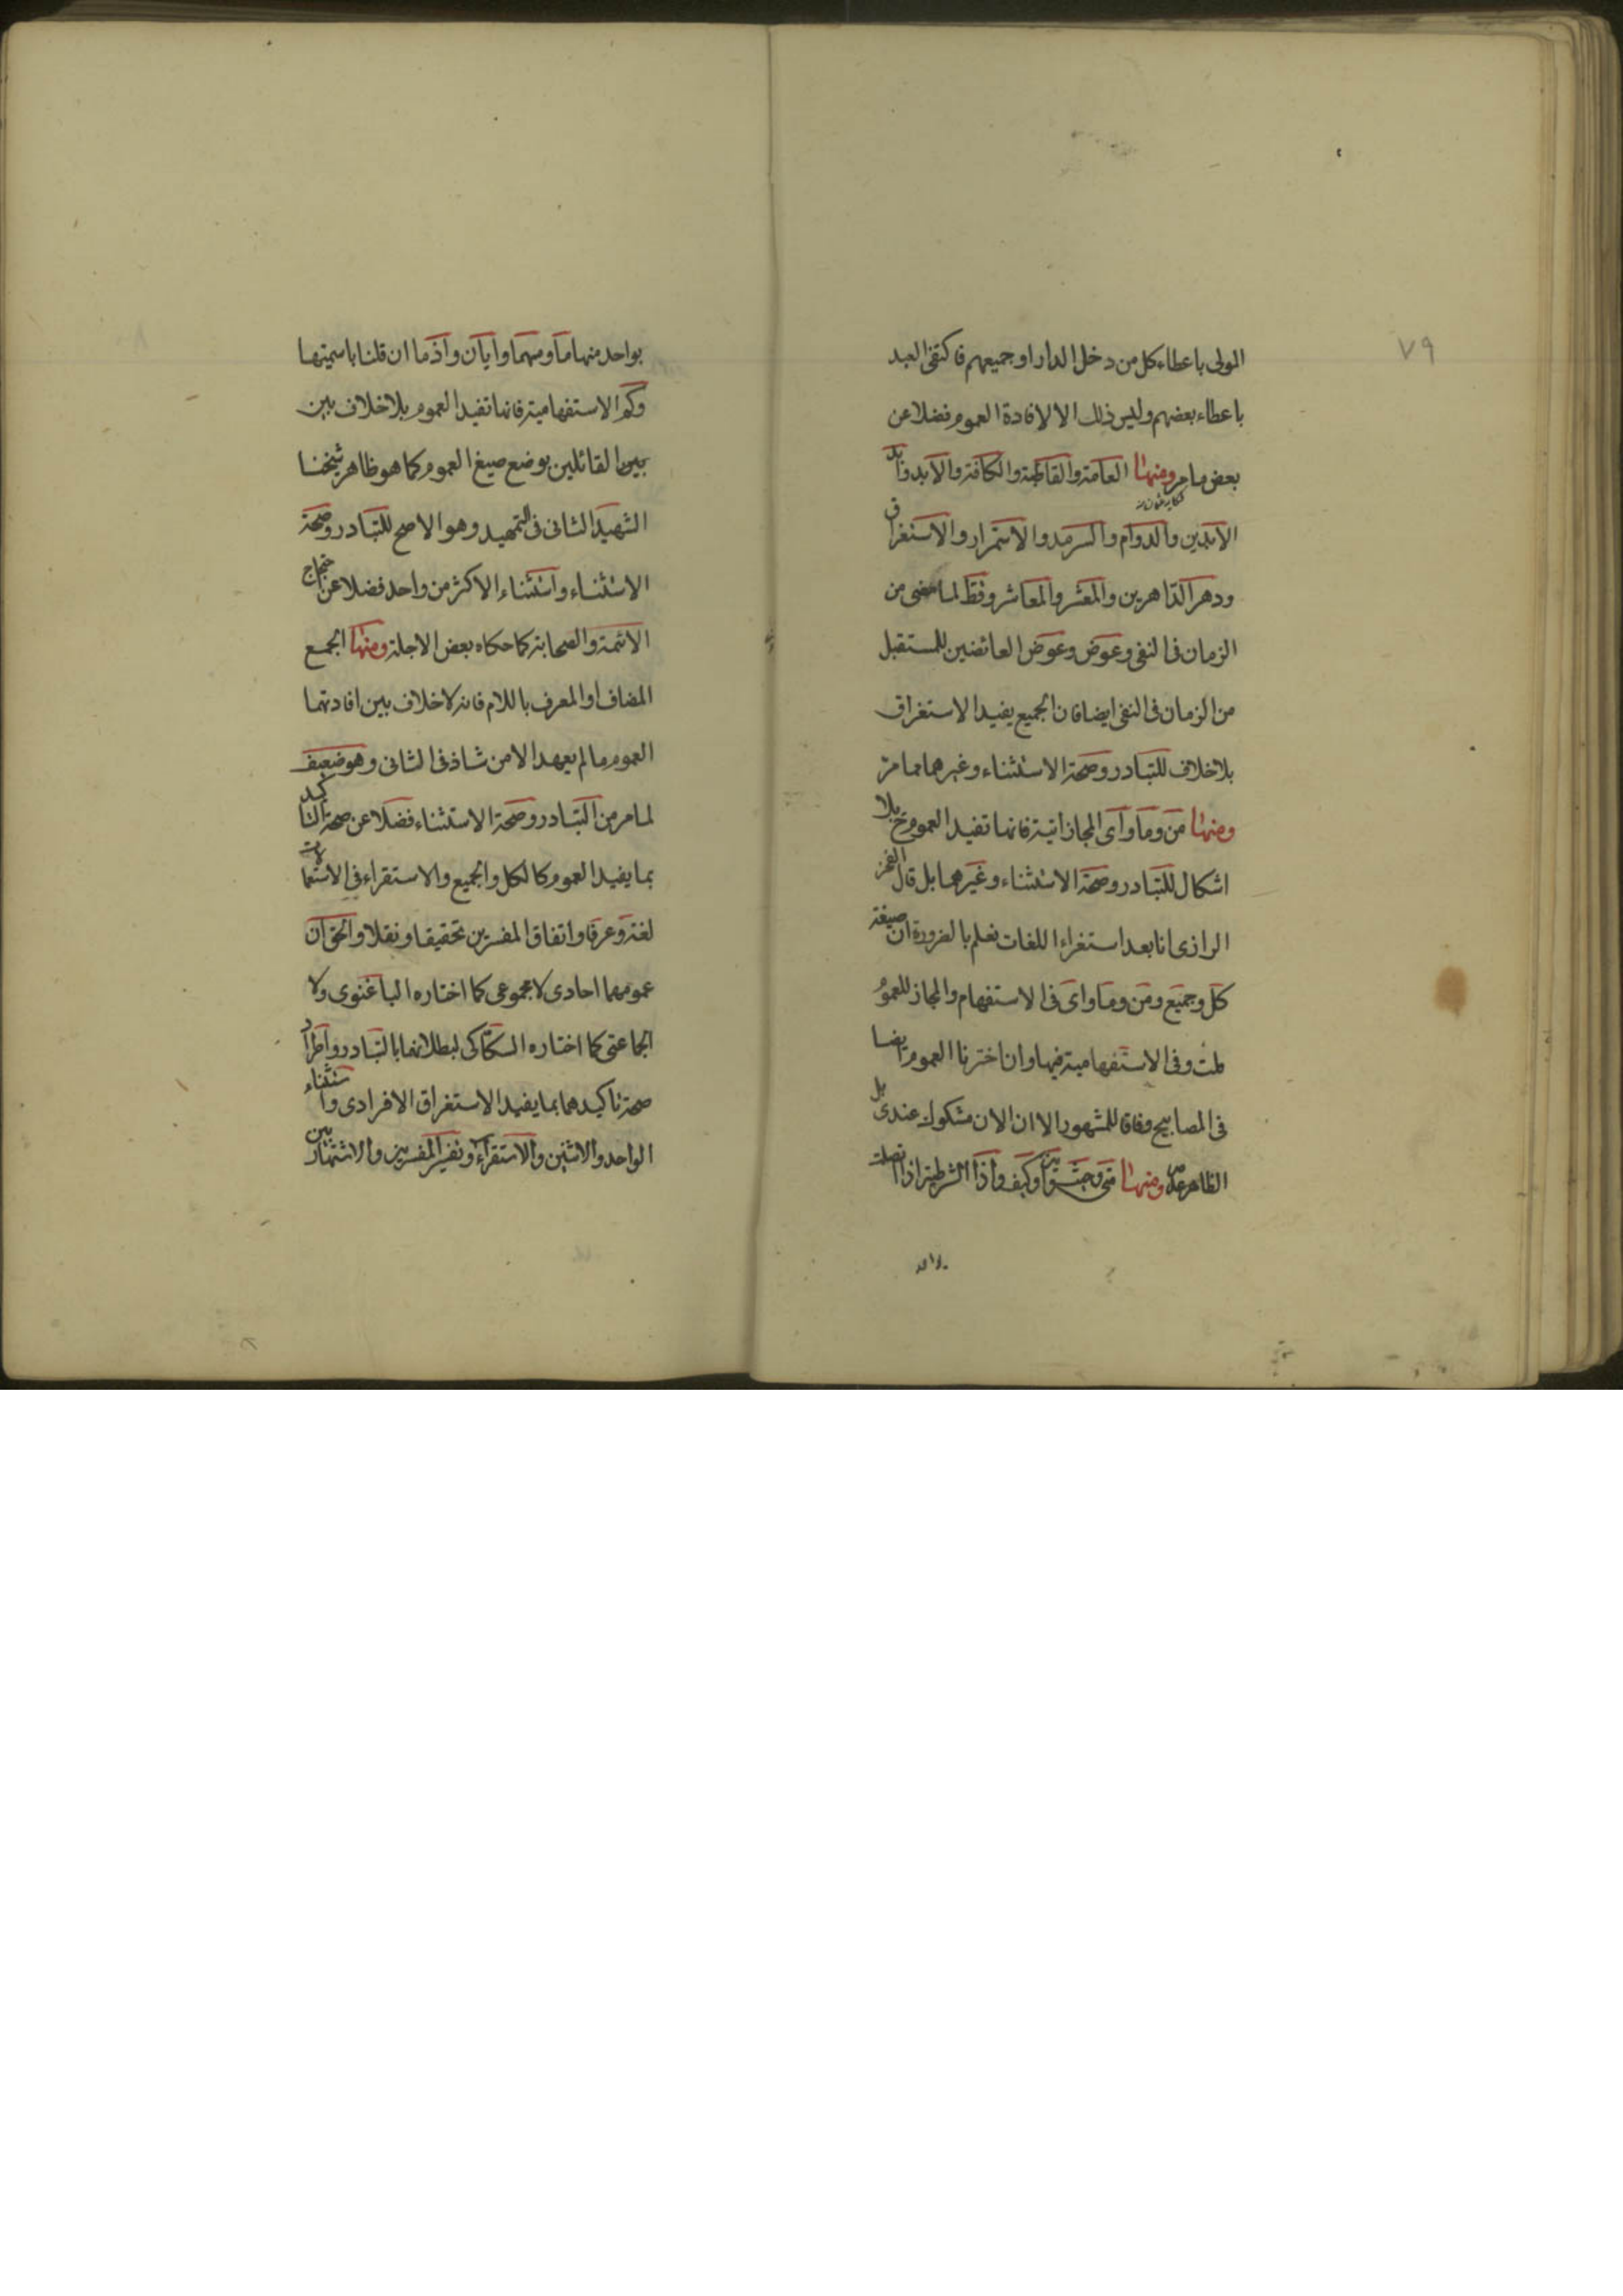 ٧٩
المولى باعطاء كل من دخل الدار او جميعهم فاكتفى العبد
باعطاء بعضهم وليس ذلك الا لافادة العموم فضلا عن
بعض ما مر ومنها العامة والقاطبة والكافة والابد وابد
الابدين والدوام والسرمد والاستمرار والاستغراق
ودهر الداهرين والمعشر والمعاشر وقط لما مضى من
الزمان فى النفى وعوض وعوض العائضين للمستقبل
من الزمان فى النفى ايضا فان الجميع يفيد الاستغراق
بلا خلاف للتبادر وصحة الاستثناء وغيرهما مما مر
ومنها من وما واى المجازاتية فانها تفيد العموم ح بلا
اشكال للتبادر وصحة الاستثناء وغيرهما بل قال الفخر
الرازى انا بعد استغراء اللغات نعلم بالضرورة ان صيغة
كل وجميع ومن وما واى فى الاستفهام والمجاز للعموم
قلت وفى الاستفهامية فيها وان اخترنا العموم ايضا
فى المصابيح وفاقا للمشهور الا ان الان مشكوك عندى بل
الظاهر عدمه ومنها متى وحيث واين وكيف واذا الشرطية اذا اتصلت
بواحد منها ما ومهما وايان واذما ان قلنا باسميتها
وكم الاستفهامية فانها تفيد العموم بلا خلاف بين
بين القائلين بوضع صيغ العموم كما هو ظاهر شيخنا
الشهيد الثانى فى التمهيد وهو الاصح للتبادر وصحة
الاستثناء واستثناء الاكثر من واحد فضلا عن احتجاج
الائمة والصحابة كما حكاه بعض الاجلة ومنها الجمع
المضاف او المعرف باللام فانه لا خلاف بين افادتهما
العموم ما لم يعهد الا من شاذ فى الثانى وهو ضعيف
لما مر من التبادر وصحة الاستثناء فضلا عن صحة التاكيد
بما يفيد العموم كالكل والجميع والاستقراء فى الاستعمالات
لغة وعرفا واتفاق المفسرين تحقيقا ونقلا والحق ان
عمومهما احادى لا مجموعى كما اختاره الباغنوى ولا
الجماعتى كما اختاره السكاكى لبطلانهما بالتبادر واطراد
صحة تاكيدهما بما يفيد الاستغراق الافرادى واستثناء
الواحد والاثنين والاستقراء وتفسير المفسرين والاشتهار بين